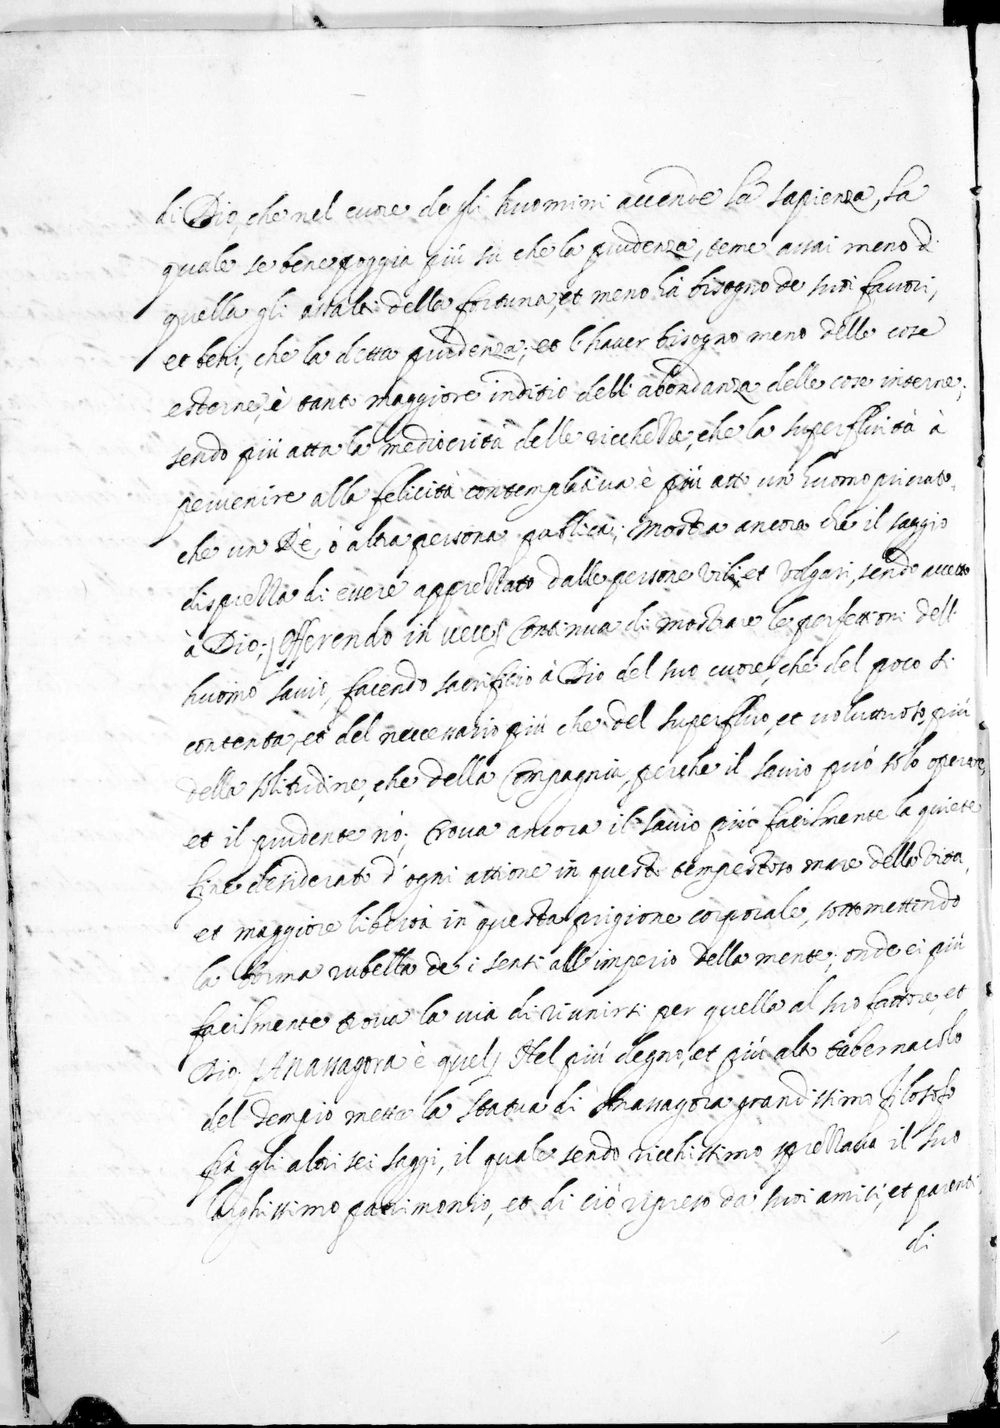 di Dio, che nel cuore de gli huomini accende la sapienza, la
quale se bene poggia più sù che la prudenza, teme assai meno di
quella gli assalti della fortuna, et meno hà bisogno de suoi fauori,
et beni, che la detta prudenza; et l'hauer bisogno meno delle cose
esterne, è tanto maggiore inditio dell'abondanza delle cose interne;
sendo più atta la mediocrità delle ricchezze, che la superfluità à
peruenire alla felicità contemplatiua è più atto un huomo priuato,
che un Rè, ò altra persona publica; Mostra ancora che il saggio
disprezza di essere apprezzato dalle persone vili, et volgari, sendo accetto
à Dio; Offerendo in uece Continua di mostrare le perfettioni dell
huomo sauio, facendo sacrificio à Dio del suo cuore, che del poco si
contenta, et del neccessario più che del superfluo, et uoluttuoso, più
della solitudine, che della Compagnia, perche il sauio può solo operare,
et il prudente nò; troua ancora il sauio più facilmente la quiete
fine desiderato d'ogni attione in questo tempestoso mare della vita,
et maggiore libertà in questa prigione corporale, sottomettendo
la torma rubella de i sensi all'imperio della mente; onde ei più
facilmente troua la uia di riunirsi per quella al suo fattore, et
Dio. Anassagora è quel Nel più degno, et più alto tabernacolo
del tempio mette la statua di Anassagora grandissimo filosofo
frà gli altri sei saggi, il quale sendo ricchissimo sprezzaua il suo
larghissimo patrimonio, et di ciò ripreso da suoi amici, et parenti
di